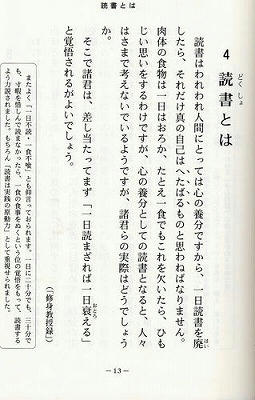 読書とは
4 読書とは
どくしょ
読書はわれわれ人間にとっては心の養分ですから、一日読書を廃
はい
したら、それだけ真の自己はへたばるものと思わねばなりません。
肉体の食物は一日はおろか、たとえ一食でもこれを欠いたら、ひも
じい思いをするわけですが、心の養分としての読書となると、人々
はさまで考えないでいるようですが、諸君らの実際はどうでしょう
か。
そこで諸君は、差し当たってまず「一日読まざれば一日衰える」
おとろ
と覚悟されるがよいでしょう。
(『修身教授録』)
またよく「一日不読、一食不喰」とも仰言っておられます。一日に二十分でも、三十分で
も、寸暇を惜しんで読まなかったら、一食の食事をぬくという位の覚悟をもって、読書する
よう力説されました。もちろん「読書は実践の原動力」として重視せられました。
－13－